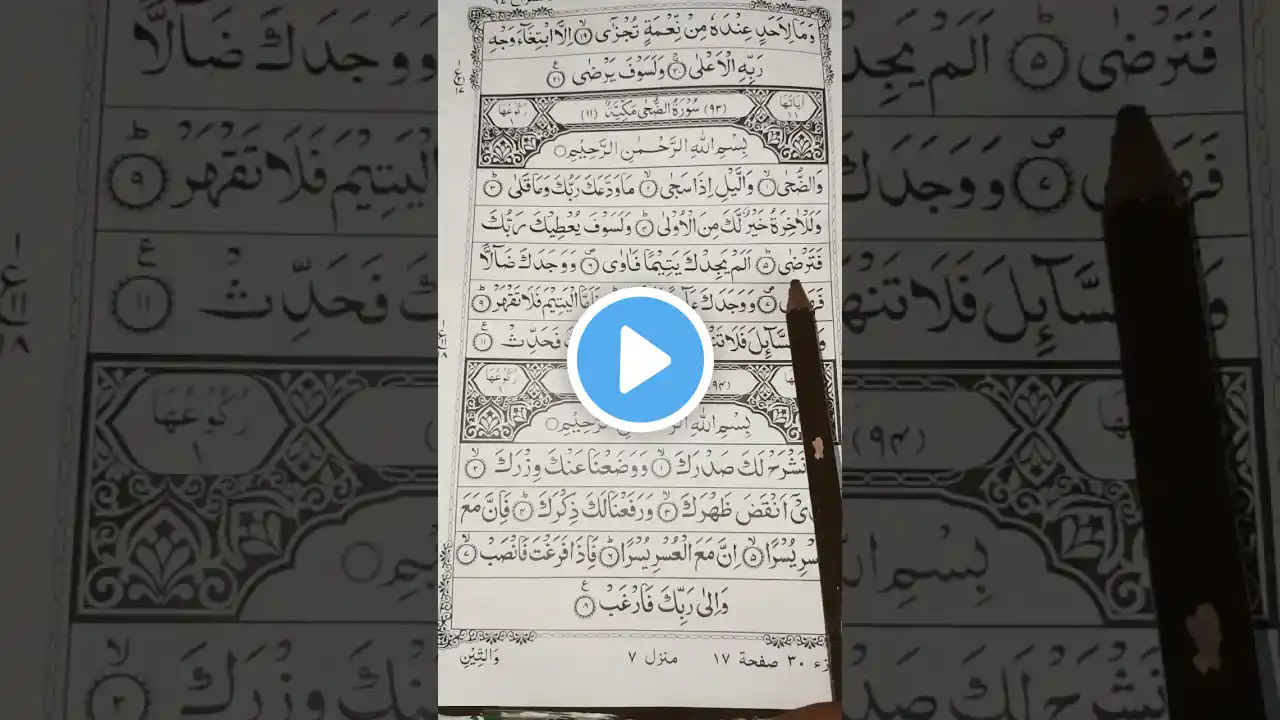 وَمَا لِاَحَدٍ عِنْدَهٗ مِنْ نِّعْمَةٍ تُجْزٰٓى ۙ﴿۱۹﴾ اِلَّا ابْتِغَآءَ وَجْهِ
رَبِّهِ الْاَعْلٰى ۚ﴿۲۰﴾ وَلَسَوْفَ يَرْضٰى ﴿۲۱﴾ ع
اٰيَاتُهَا ١١ (٩٣) سُوْرَةُ الضُّحٰى مَكِّيَّةٌ (١١) رُكُوْعُهَا ١
بِسْمِ اللهِ الرَّحْمٰنِ الرَّحِيْمِ
وَالضُّحٰى ۙ﴿۱﴾ وَالَّيْلِ اِذَا سَجٰى ۙ﴿۲﴾ مَا وَدَّعَكَ رَبُّكَ وَمَا قَلٰى ؕ﴿۳﴾
وَلَلْاٰخِرَةُ خَيْرٌ لَّكَ مِنَ الْاُوْلٰى ؕ﴿۴﴾ وَلَسَوْفَ يُعْطِيْكَ رَبُّكَ
فَتَرْضٰى ؕ﴿۵﴾ اَلَمْ يَجِدْكَ يَتِيْمًا فَاٰوٰى ۪﴿۶﴾ وَوَجَدَكَ ضَآلًّا
۪﴿۷﴾ وَوَجَدَكَ الْيَتِيْمَ فَلَا تَقْهَرْ ؕ﴿۹﴾
السَّآئِلَ فَلَا فَحَدِّثْ ﴿۱۱﴾ ع
(٩٤) رُكُوْعُهَا ١
بِسْمِ اللهِ الرَّحِيْمِ
نَشْرَحْ لَكَ صَدْرَكَ ۙ﴿۱﴾ وَوَضَعْنَا عَنْكَ وِزْرَكَ ۙ﴿۲﴾
اَنْقَضَ ظَهْرَكَ ۙ﴿۳﴾ وَرَفَعْنَا لَكَ ذِكْرَكَ ؕ﴿۴﴾ فَاِنَّ مَعَ
يُسْرًا ۙ﴿۵﴾ اِنَّ مَعَ الْعُسْرِ يُسْرًا ؕ﴿۶﴾ فَاِذَا فَرَغْتَ فَانْصَبْ ۙ﴿۷﴾
وَاِلٰى رَبِّكَ فَارْغَبْ ﴿۸﴾ ع
٣٠ صفحة ١٧ منزل ٧ وَالتِّيْنِ